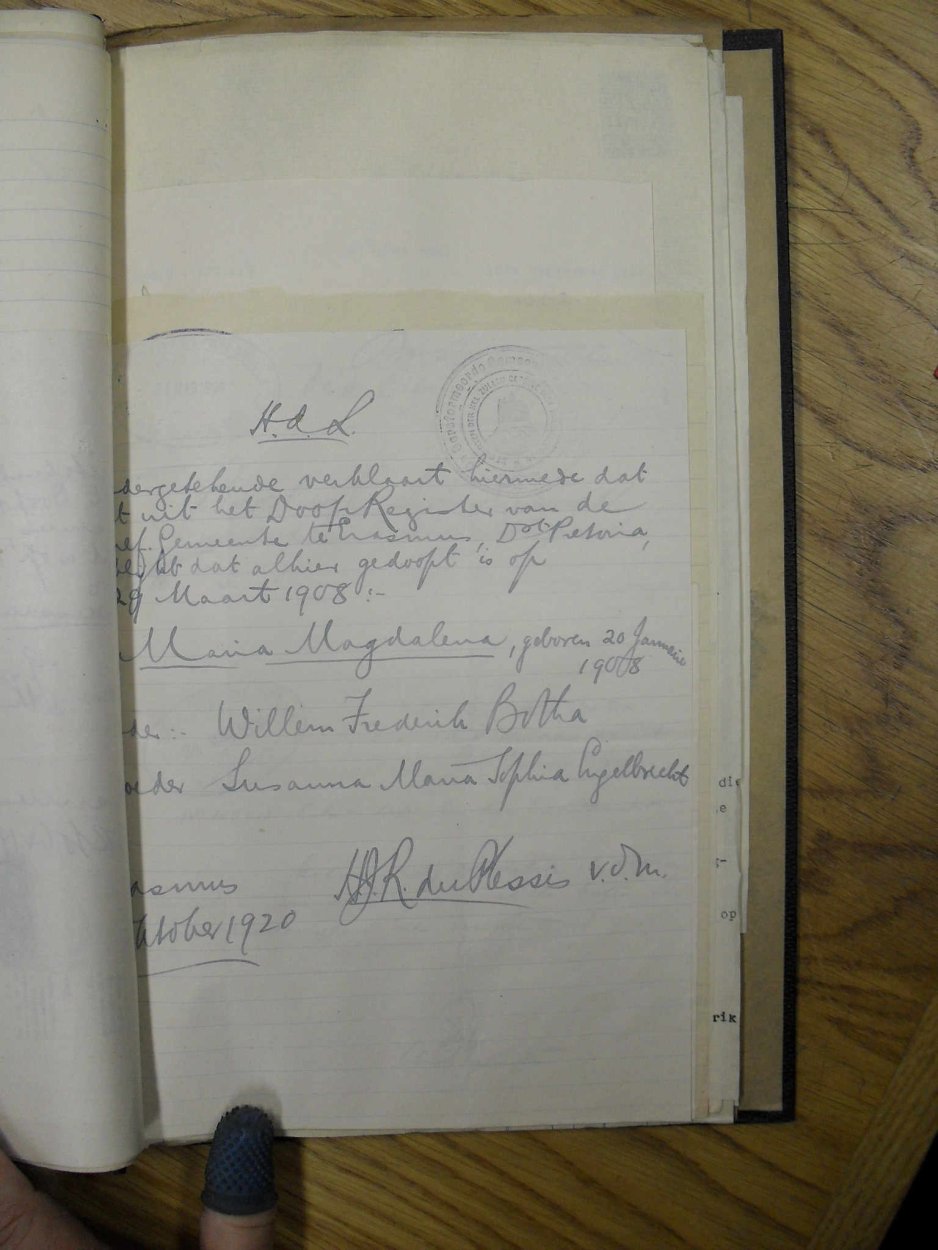 H. d. L.
dergetekende verklaart hiermede dat
t uit het Doop Register van de
ref. Gemeente te Erasmus, Dist Pretoria,
blykt dat alhier gedoopt is op
29 Maart 1908 :-
Maria Magdalena, geboren 20 Januarie
1908
der :- Willem Frederik Botha
oeder Susanna Maria Sophia Engelbrecht
asmus H.J.R. du Plessis v.d.m.
ktober 1920
die
e
op
rik